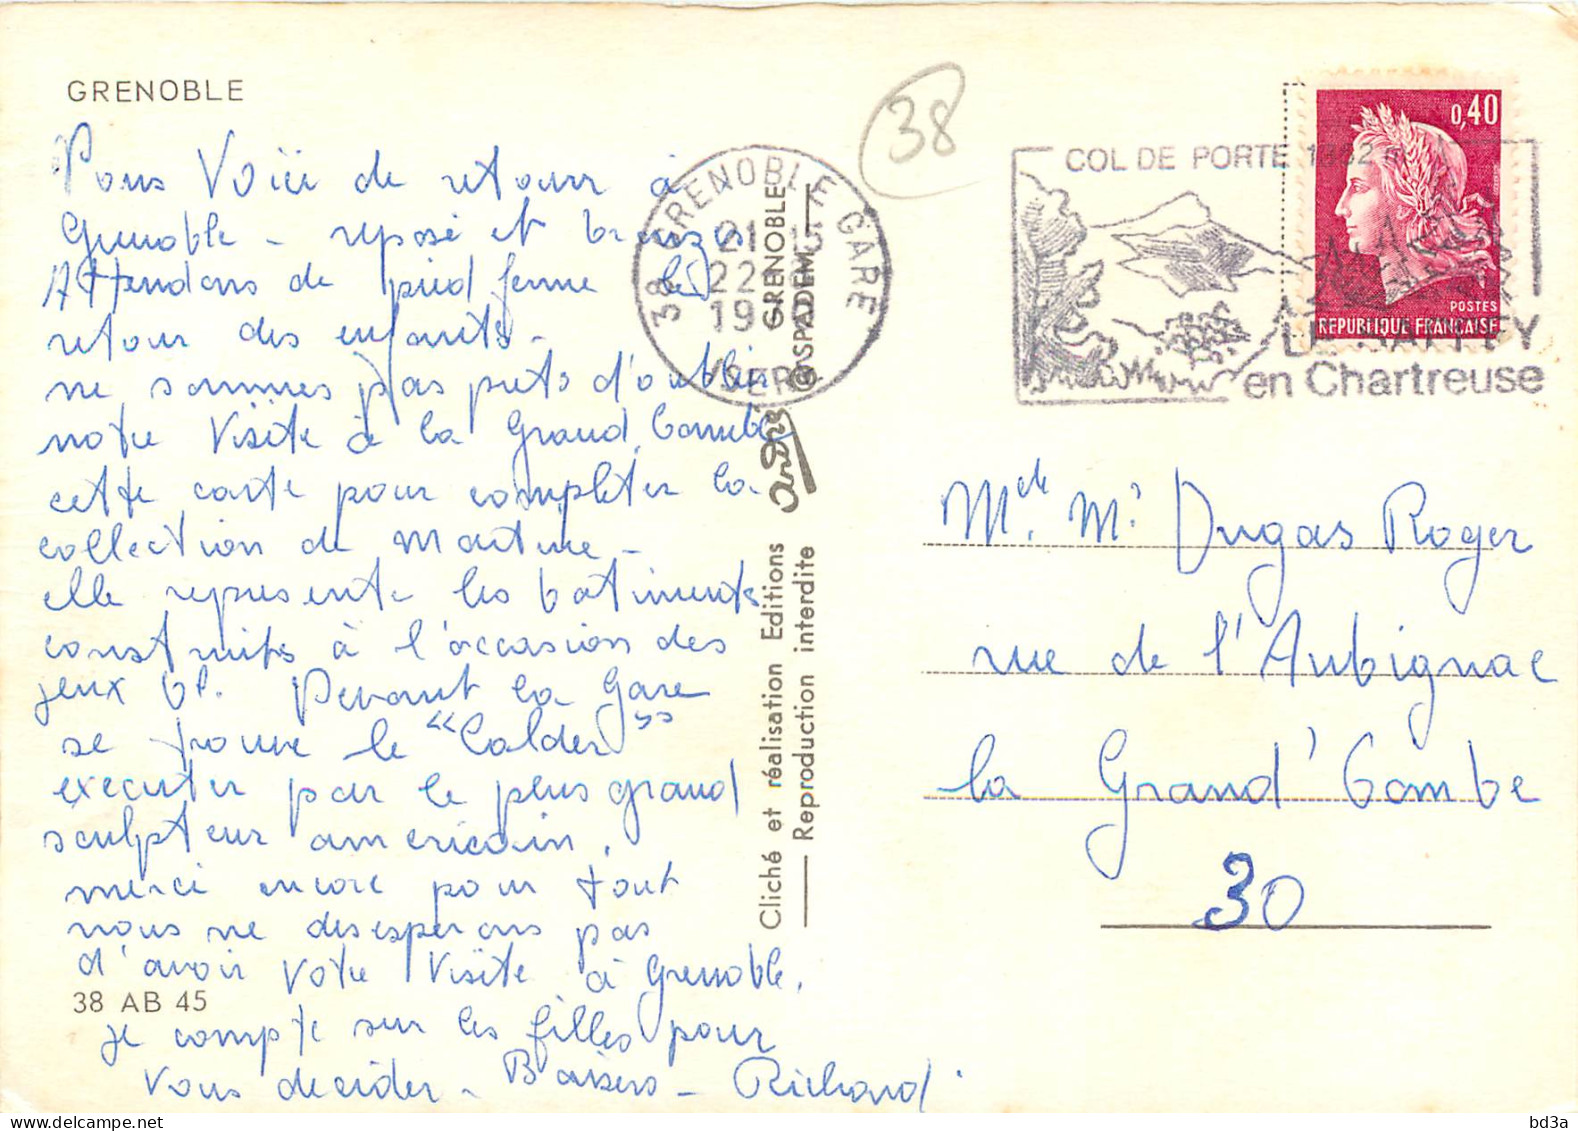 GRENOBLE
Nous Voici de retour à
Grenoble - reposé et bronzés
Attendons de pied ferme le
retour des enfants -
ne sommes pas prets d'oublier
notre Visite à la Grand Combe
cette carte pour completer la
collection de Martine -
elle represente les batiments
construits à l'occasion des
jeux Ol. Devant la Gare
se trouve le "Calder"
executer par le plus grand
sculpteur americain.
merci encore pour tout
nous ne desesperons pas
d'avoir votre visite à Grenoble.
38 AB 45
je compte sur les filles pour
vous decider - Baisers - Richard
38
38 GRENOBLE GARE
21
22
19
ISERE
COL DE PORTE
LE SAPPEY
en Chartreuse
0,40
POSTES
REPUBLIQUE FRANÇAISE
GRENOBLE
GRENOBLE
© SPADEM
André
Cliché et réalisation Editions
Reproduction interdite
Mr. Dugas Roger
rue de l'Aubignac
la Grand' Combe
30
bd3a